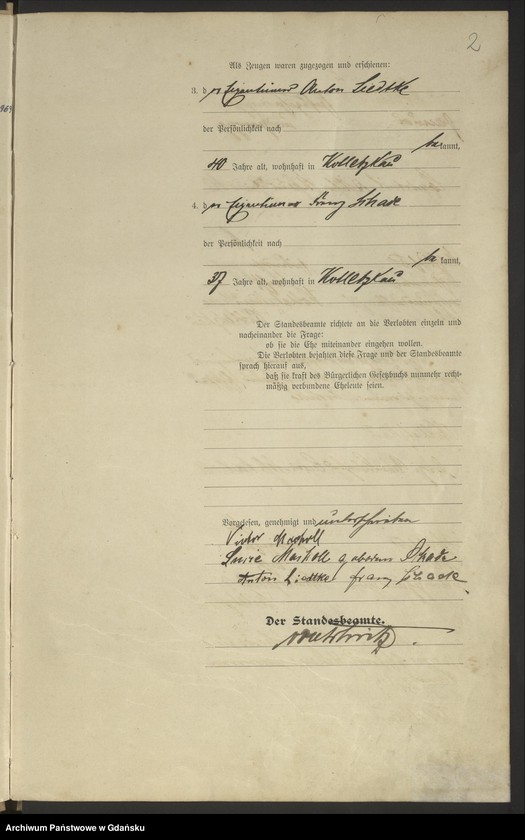 2
Als Zeugen waren zugezogen und erschienen:
3. der Eigentümer Anton Liedtke
der Persönlichkeit nach
bekannt,
40 Jahre alt, wohnhaft in Kolletzkau
4. der Eigentümer Franz Schade
der Persönlichkeit nach
bekannt,
37 Jahre alt, wohnhaft in Kolletzkau
Der Standesbeamte richtete an die Verlobten einzeln und
nacheinander die Frage:
ob sie die Ehe miteinander eingehen wollen.
Die Verlobten bejahten diese Frage und der Standesbeamte
sprach hierauf aus,
daß sie kraft des Bürgerlichen Gesetzbuchs nunmehr recht-
mäßig verbundene Eheleute seien.
Vorgelesen, genehmigt und unterschrieben
Victor
geboren
Anton Liedtke Franz Schade
Der Standesbeamte.
Archiwum Państwowe w Gdańsku